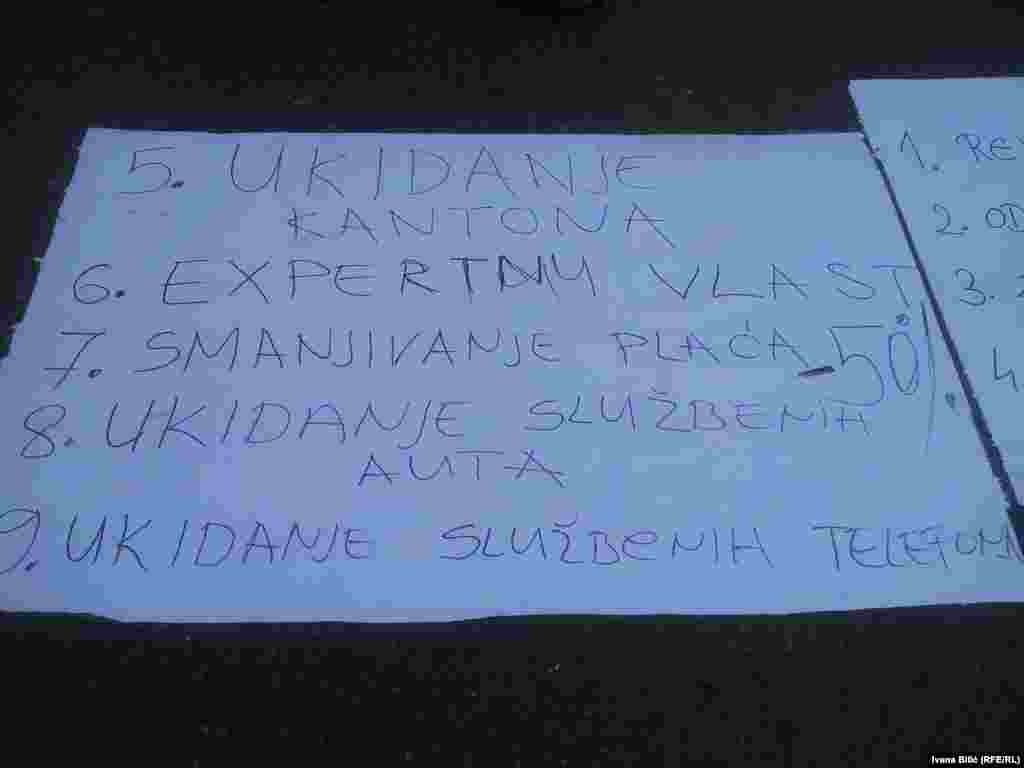 5. UKIDANJE
KANTONA
6. EXPERTNU VLAST
7. SMANJIVANJE PLAĆA -50%
8. UKIDANJE SLUŽBENIH
AUTA
9. UKIDANJE SLUŽBENIH TELEFONA
1. REV
2. OD
3.
4.
Ivana Bilić (RFE/RL)